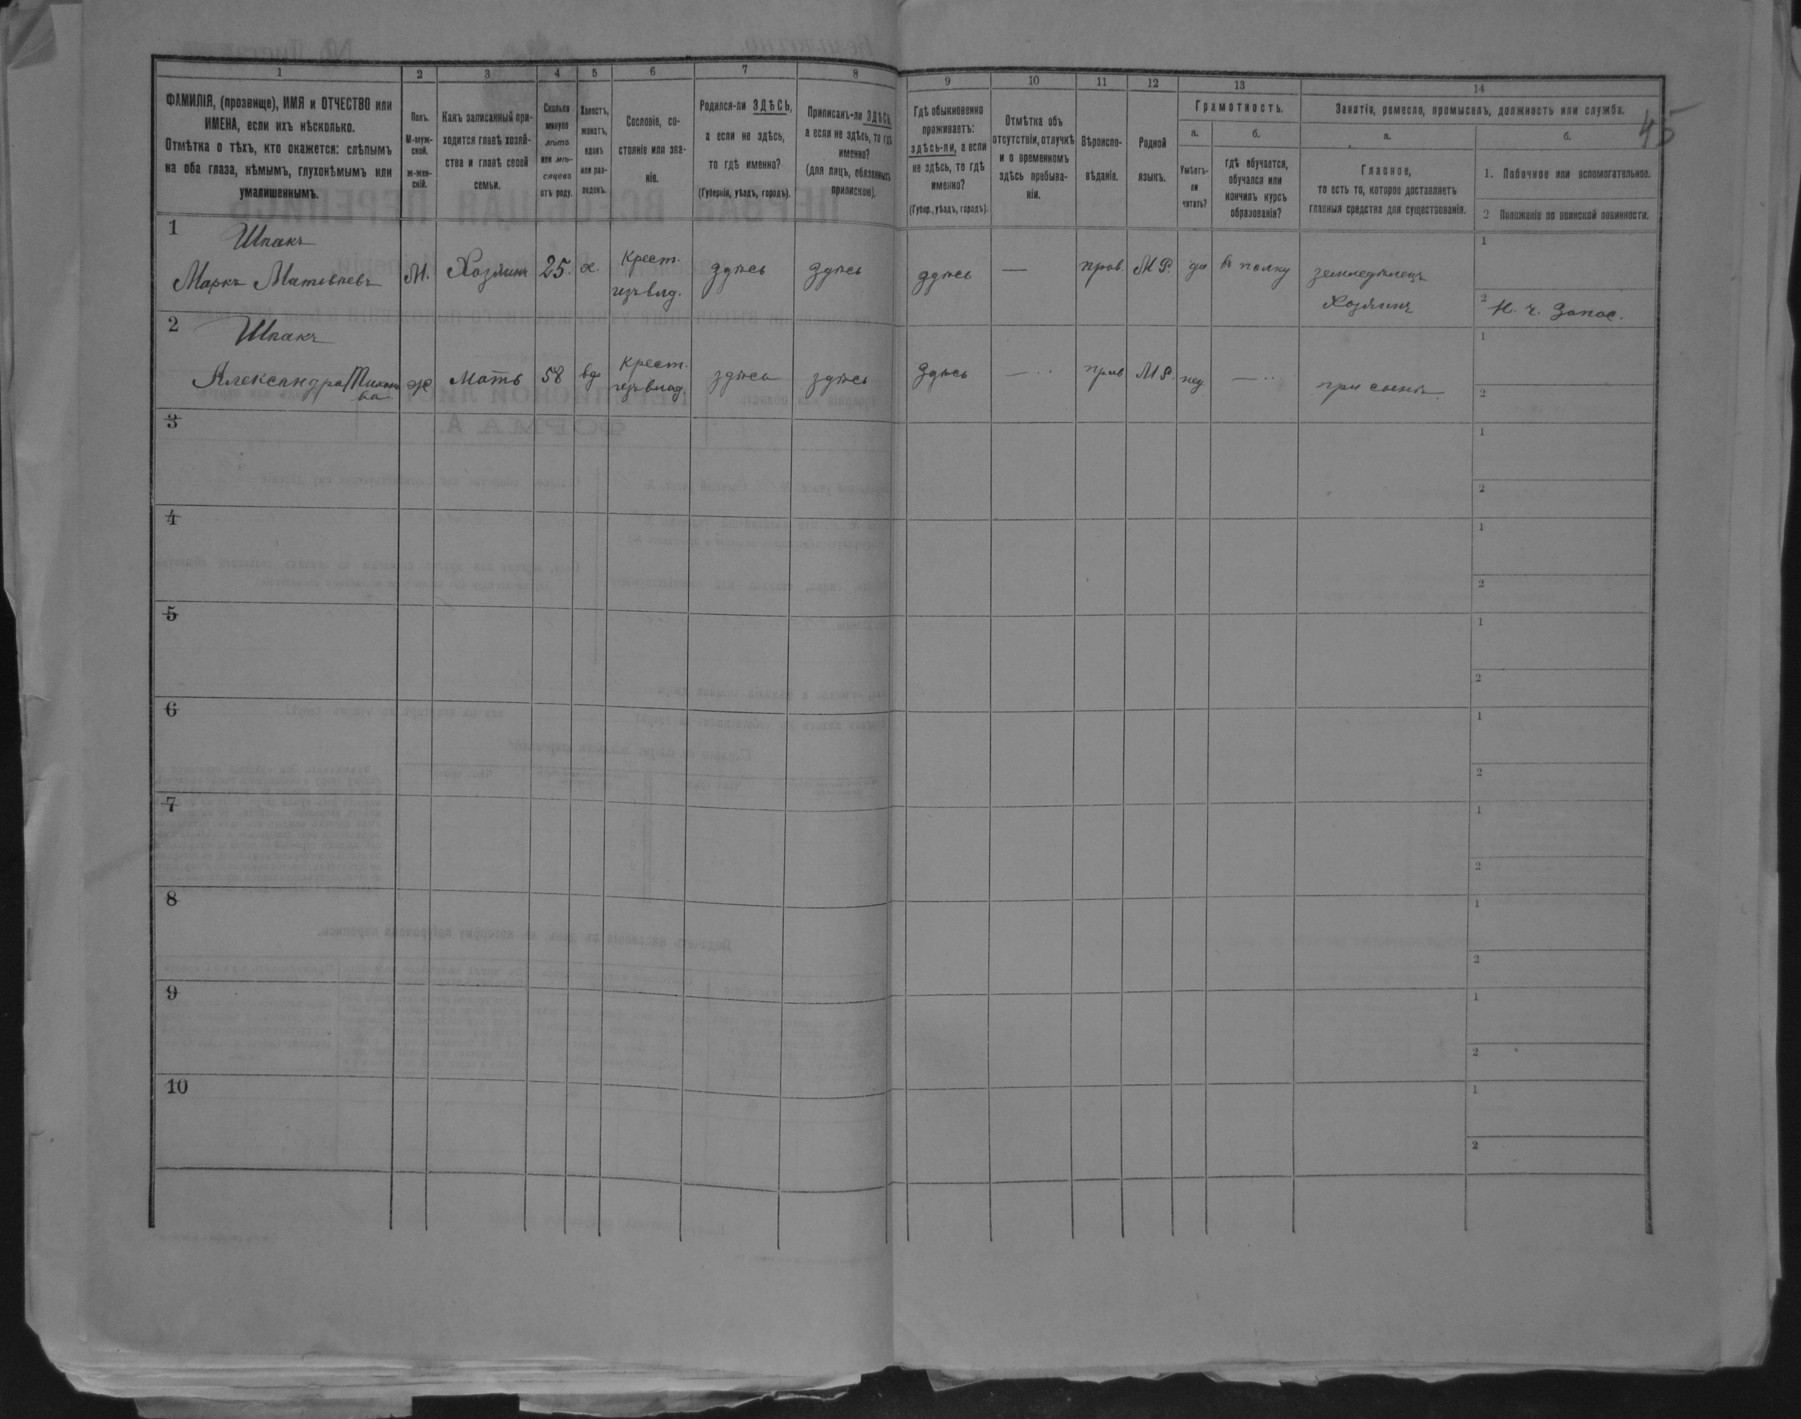 45
1 2 3 4 5 6 7 8 9 10 11 12 13 14
ФАМИЛІЯ, (прозвище), ИМЯ и ОТЧЕСТВО или
ИМЕНА, если ихъ нѣсколько.
Отмѣтка о тѣхъ, кто окажется: слѣпымъ
на оба глаза, нѣмымъ, глухонѣмымъ или
умалишеннымъ.
Полъ.
М-муж-
ской.
ж-жен-
скій.
Какъ записанный при-
ходится главѣ хозяй-
ства и главѣ своей
семьи.
Сколько
минуло
лѣтъ
или мѣ-
сяцевъ
отъ роду.
Холостъ,
женатъ,
вдовъ
или раз-
веденъ.
Сословіе, со-
стояніе или зва-
ніе.
Родился-ли ЗДѢСЬ,
а если не здѣсь,
то гдѣ именно?
(Губернія, уѣздъ, городъ).
Приписанъ-ли ЗДѢСЬ,
а если не здѣсь, то гдѣ
именно?
(для лицъ, обязанныхъ
припискою).
Гдѣ обыкновенно
проживаетъ:
здѣсь-ли, а если
не здѣсь, то гдѣ
именно?
(Губер., уѣздъ, городъ).
Отмѣтка объ
отсутствіи, отлучкѣ
и о временномъ
здѣсь пребыва-
ніи.
Вѣроиспо-
вѣданіе.
Родной
языкъ.
Грамотность.
а.
Умѣетъ-
ли
читать?
б.
гдѣ обучается,
обучался или
кончилъ курсъ
образованія?
Занятія, ремесло, промыселъ, должность или служба.
а.
Главное,
то есть то, которое доставляетъ
главныя средства для существованія.
б.
1. Побочное или вспомогательное.
2 Положеніе по воинской повинности.
1
Шпакъ
Маркъ Матвѣевъ М. Хозяинъ 25. х. Крест.
гзъ влад. здѣсь здѣсь здѣсь — прав М Р. да въ полку земледѣлецъ
Хозяинъ
1
2 Н. ч. Запас.
2
Шпакъ
Александра ж мать 58 вд Крест.
гзъ влад. здѣсь здѣсь здѣсь — прав М Р. нет — при сынѣ
1
2
3
1
2
4
1
2
5
1
2
6
1
2
7
1
2
8
1
2
9
1
2
10
1
2